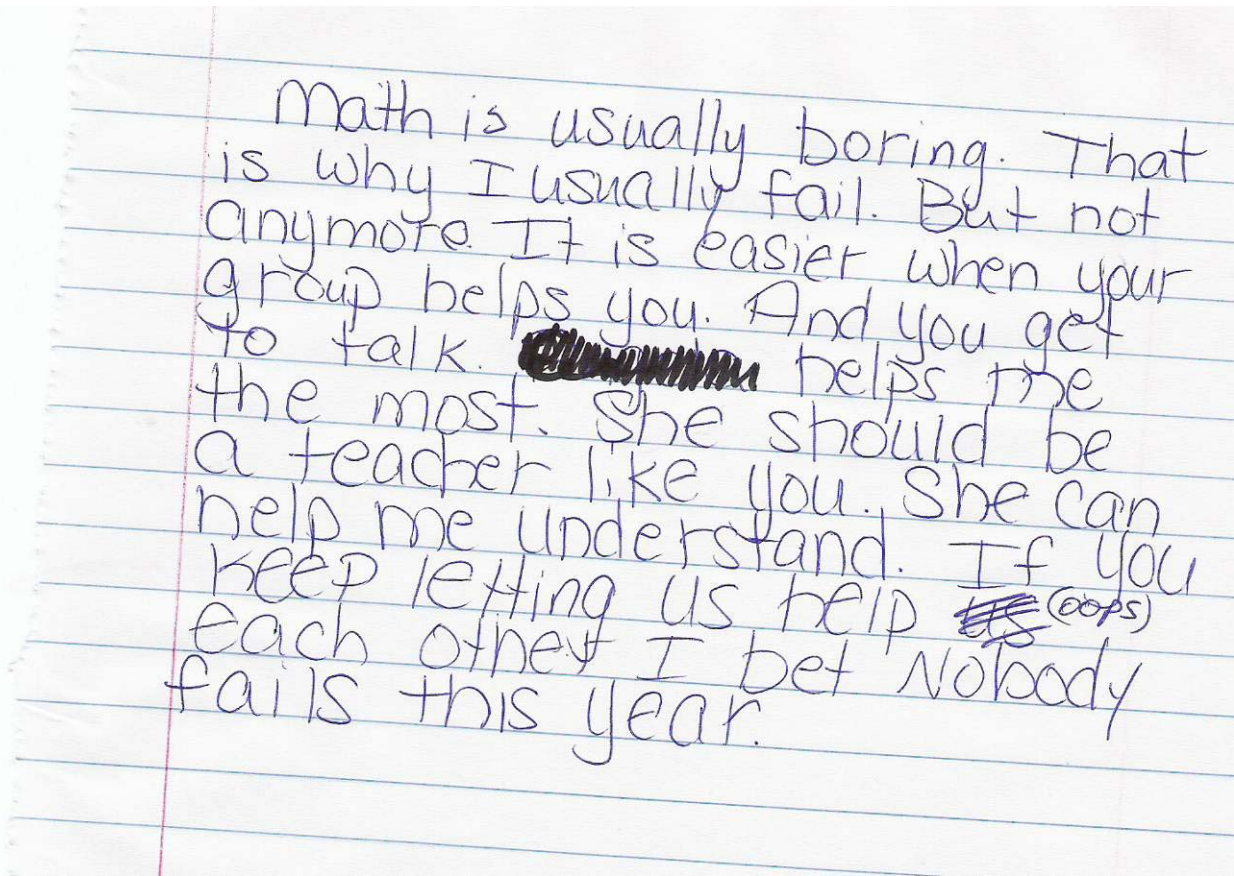 Math is usually boring. That
is why I usually fail. But not
anymore. It is easier when your
group helps you. And you get
to talk. helps me
the most. She should be
a teacher like you. She can
help me understand. If you
keep letting us help us (oops)
each other I bet Nobody
fails this year.